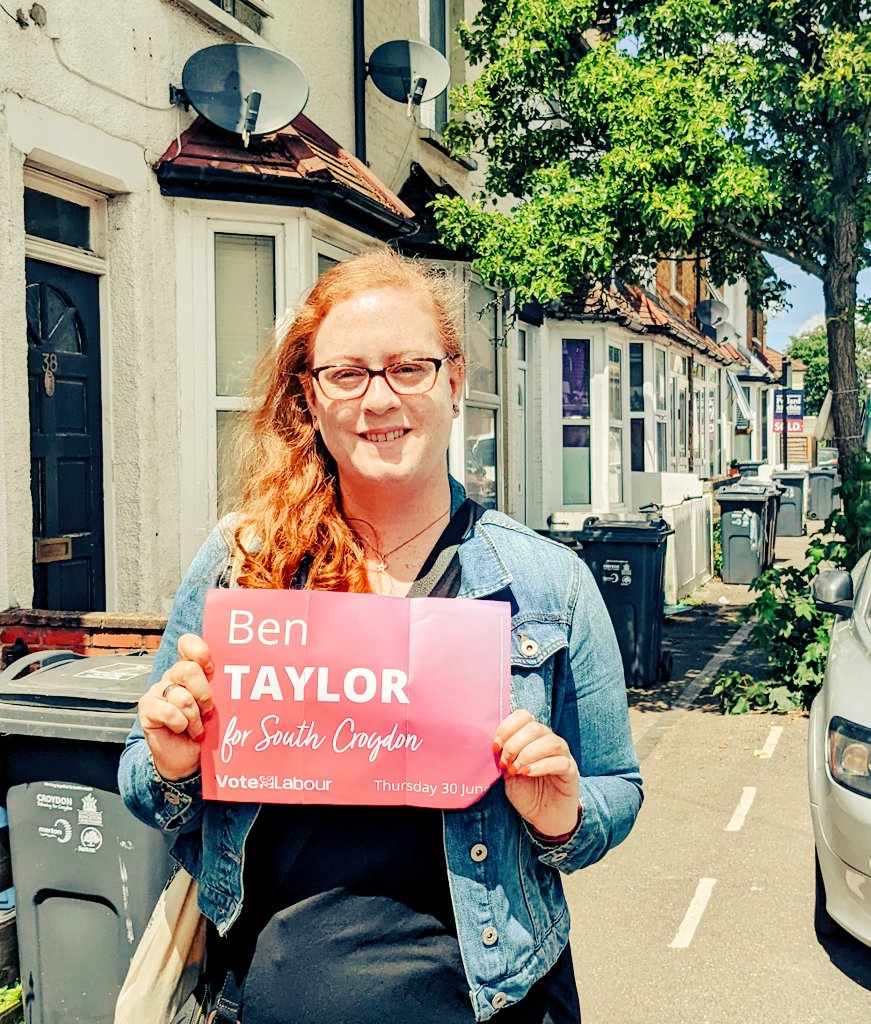 38
SOLD
Ben
TAYLOR
for South Croydon
Vote Labour
Thursday 30 June
CROYDON
KINGSTON
merton
Sutton